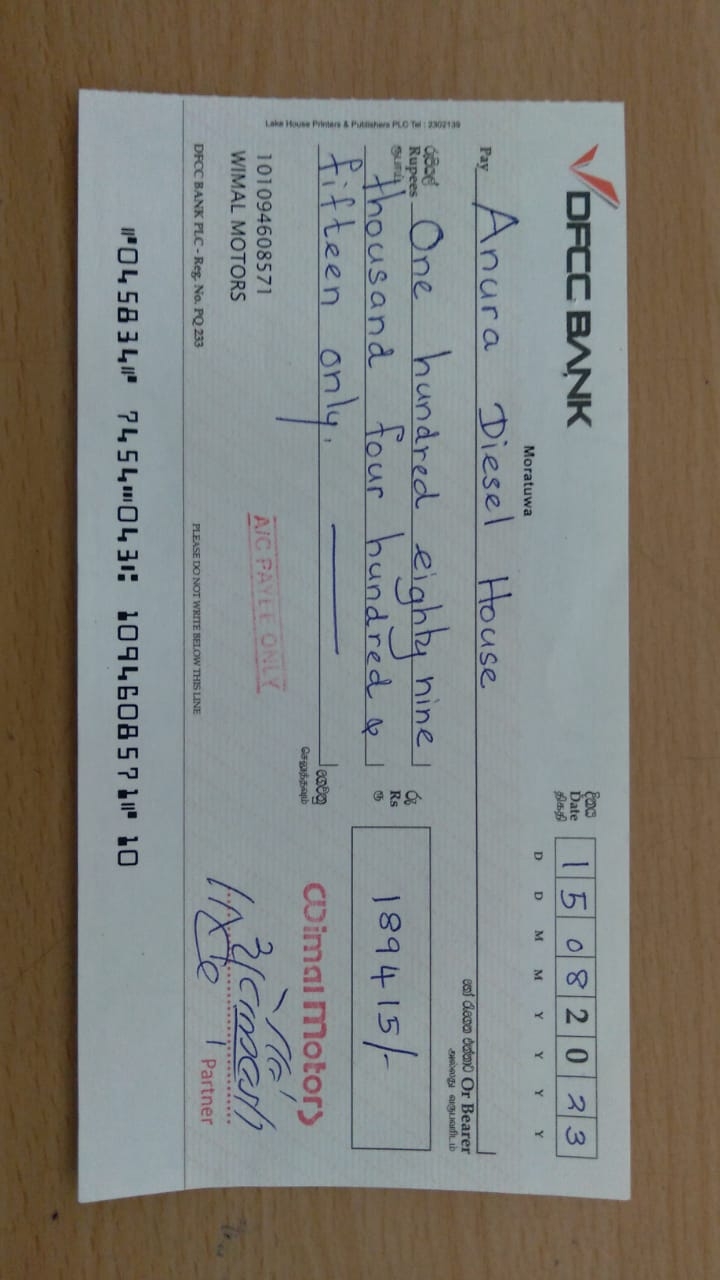 DFCC BANK
Moratuwa
දිනය
Date
திகதி
1 5 0 8 2 0 2 3
D D M M Y Y Y Y
Pay Anura Diesel House
Or Bearer
රුපියල්
Rupees
ரூபாய்
One hundred eighty nine
thousand four hundred &
fifteen only.
රු
Rs
ரூ
189415/-
Lake House Printers & Publishers PLC Tel : 2302139
101094608571
WIMAL MOTORS
A/C PAYEE ONLY
Wimal Motors
Partner
DFCC BANK PLC - Reg. No. PQ 233
PLEASE DO NOT WRITE BELOW THIS LINE
⑈045834⑈ 7454⑉043⑆ 1094608571⑈ 10